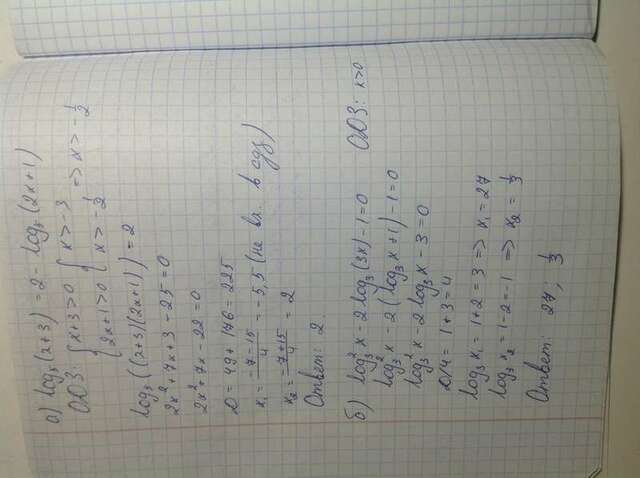 а) log₅(2+3) = 2 - log₅(2x+1)
ОДЗ: { x+3>0 { x>-3
{ 2x+1>0 { x>-1/2 => x>-1/2
log₅((2+3)(2x+1)) = 2
2x²+7x+3-25=0
2x²+7x-22=0
D = 49+176=225
x₁ = (-7-15)/4 = -5,5 (не вх. в одз)
x₂ = (-7+15)/4 = 2
Ответ: 2.
б) log₃²x - 2log₃(3x) - 1 = 0 ОДЗ: x>0
log₃²x - 2(log₃x+1) - 1 = 0
log₃²x - 2log₃x - 3 = 0
D/4 = 1+3=4
log₃x₁ = 1+2=3 => x₁=27
log₃x₂ = 1-2=-1 => x₂=1/3
Ответ: 27; 1/3